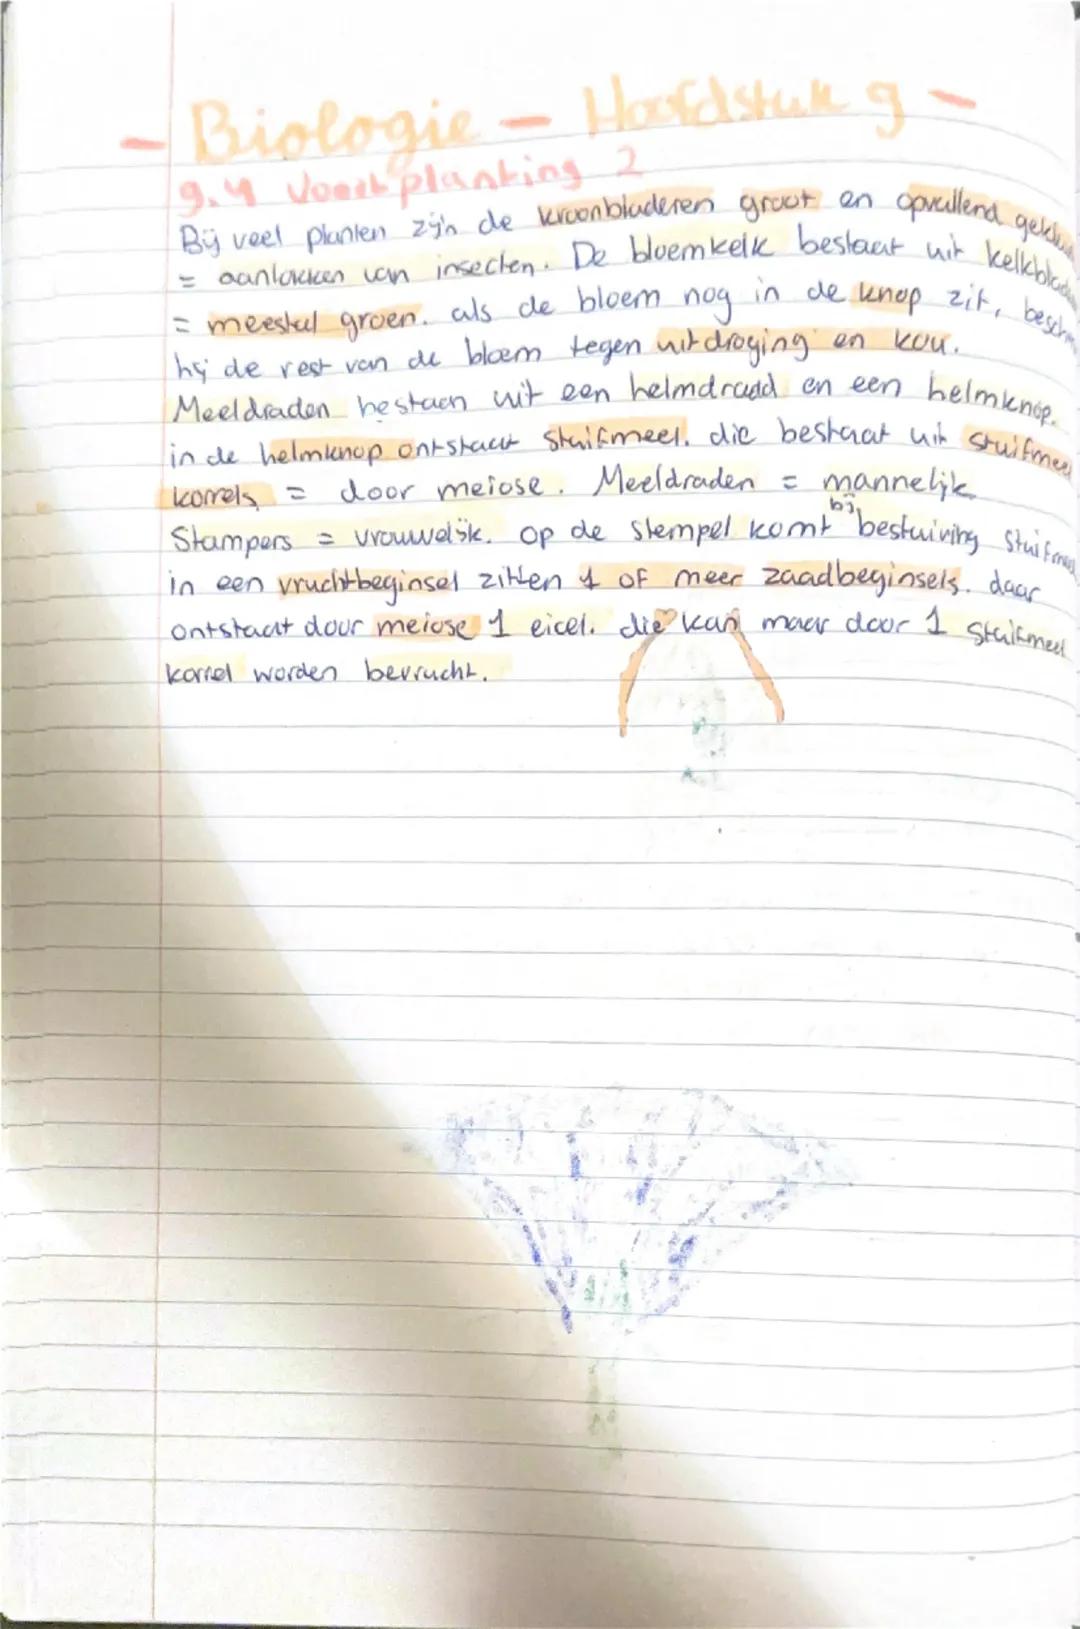 - Biologie - Hoofdstuk 9 -
9.4 Voortplanting 2
Bij veel planten zijn de kroonbladeren groot en opvallend gekleu
= aanlokken van insecten. De bloemkelk bestaat uit kelkblade
= meestal groen. als de bloem nog in de knop zit, bescher
hij de rest van de bloem tegen uitdroging en kou.
Meeldraden bestaan uit een helmdraad en een helmknop.
in de helmknop ontstaat stuifmeel. die bestaat uit stuifmeel
korrels = door meiose. Meeldraden = mannelijk
Stampers = vrouwelijk. op de stempel komt bij bestuiving stuifmeel
in een vruchtbeginsel zitten 1 of meer zaadbeginsels. daar
ontstaat door meiose 1 eicel. die kan maar door 1 stuifmeel
korrel worden bevrucht.